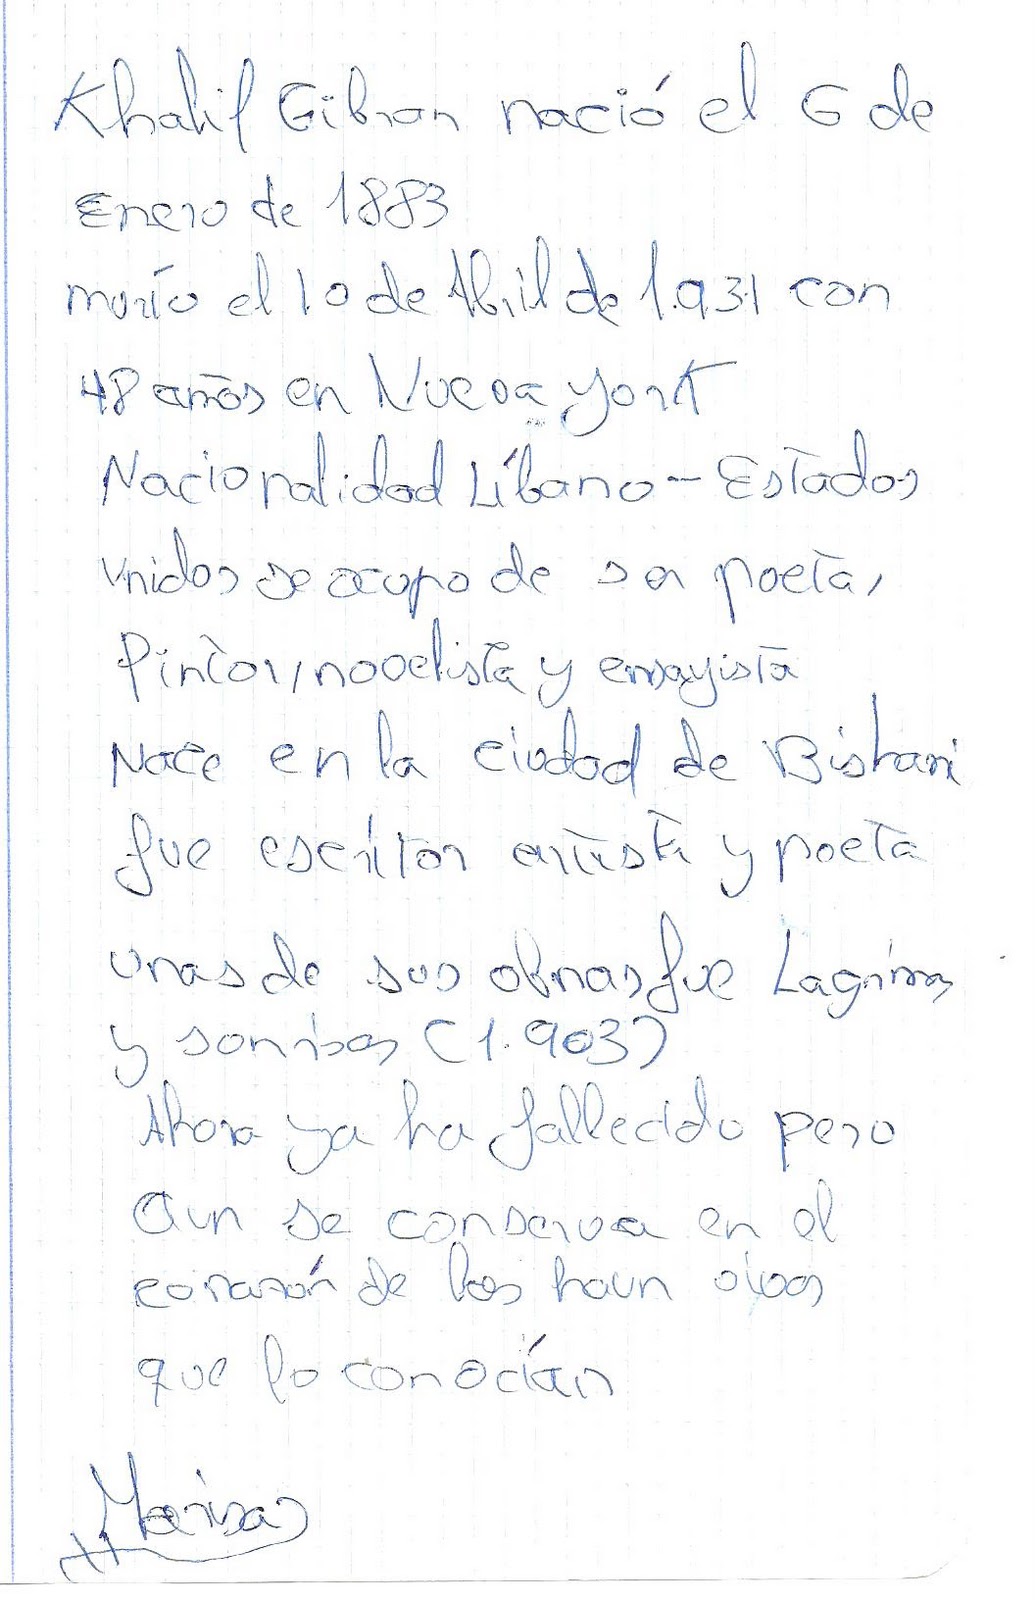 Khalil Gibran nació el 6 de
Enero de 1883
murío el 10 de Abril de 1.931 con
48 años en Nueva york
Nacionalidad Líbano - Estados
Unidos se ocupo de ser poeta,
Pintor, novelista y ensayista
Nace en la ciudad de Bisharri
fue escritor artista y poeta
unas de sus obras fue Lagrimas
y sonrisas (1.903)
Ahora ya ha fallecido pero
Aun se conserva en el
corazón de los haun vivos
que lo conocían
Marisa